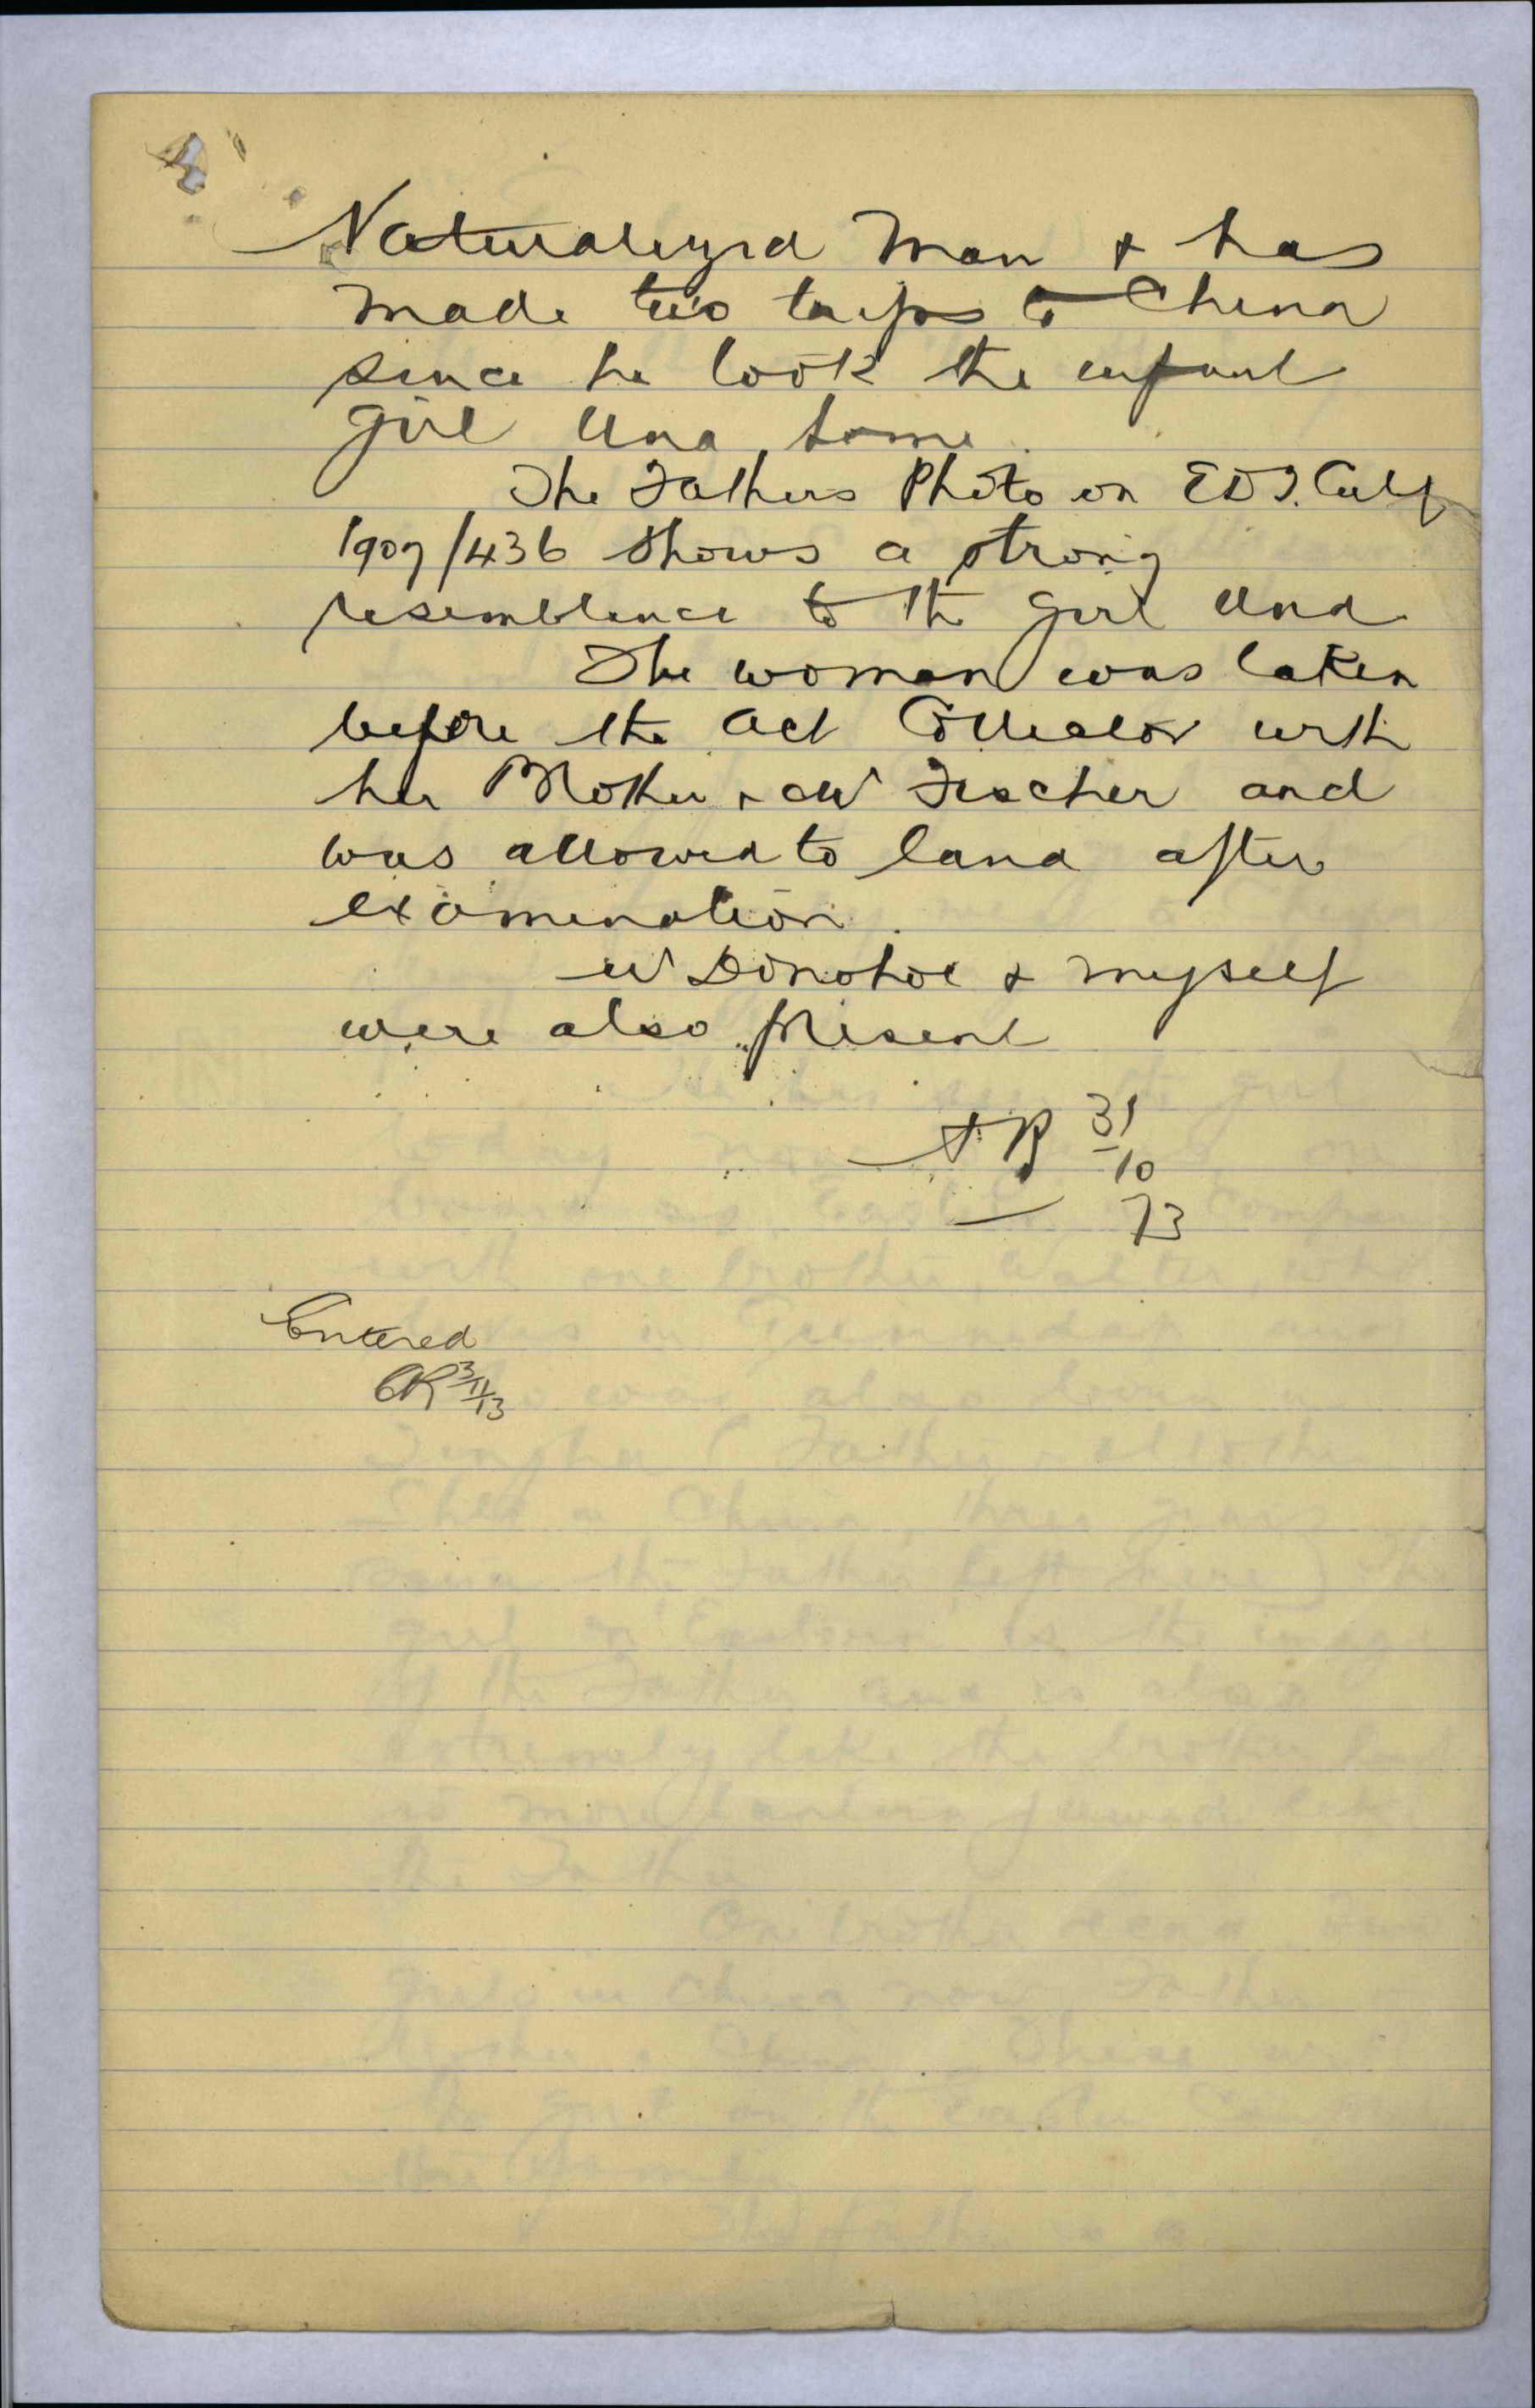 Naturalized Man & has
made two trips to China
since he took the infant
girl Una home.
The Fathers Photo on EDT. Certf
1907/436 shows a strong
resemblance to the girl Una
The woman was taken
before the Act Collector with
her Mother & Mr Fischer and
was allowed to land after
examination.
Mr Donohoe & myself
were also present
31
10
13
Entered
3/11/13